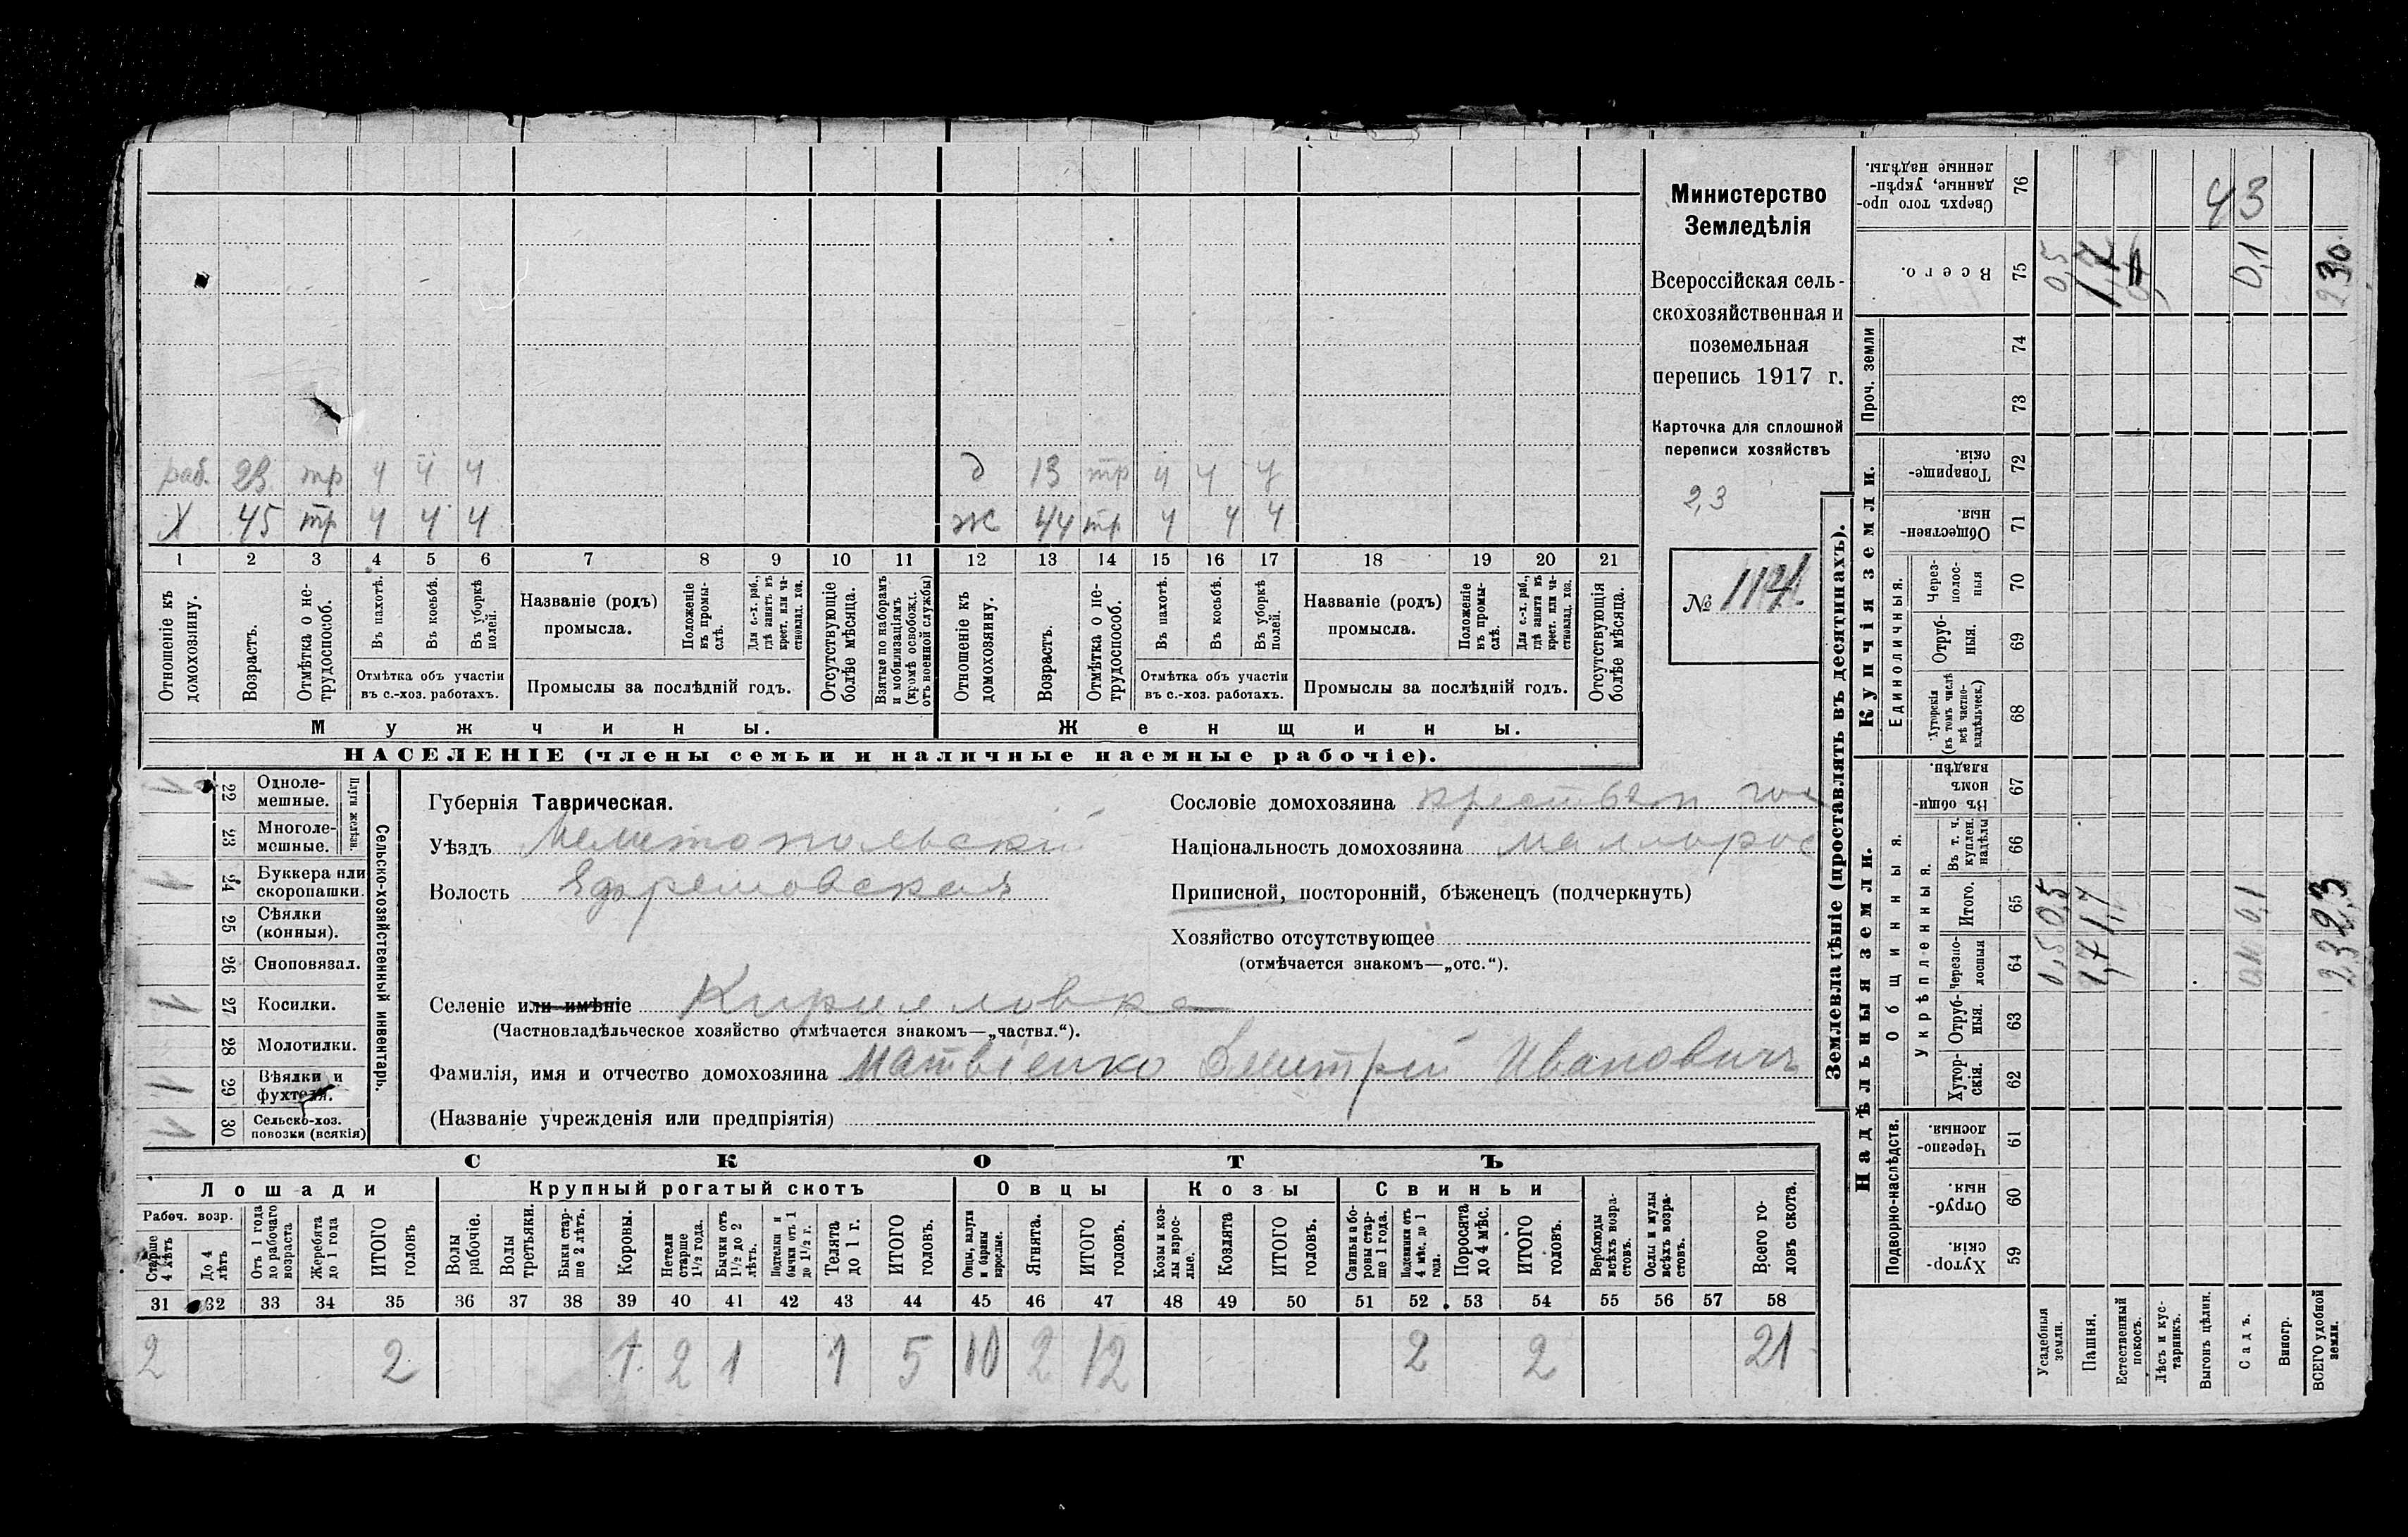 раб. 23 тр ч ч ч д 13 тр ч ч ч
Х 45 тр ч ч ч ж 44 тр ч ч ч
1 2 3 4 5 6 7 8 9 10 11 12 13 14 15 16 17 18 19 20 21
Отношеніе къ домохозяину.
Возрастъ.
Отмѣтка о не-
трудоспособ.
Въ пахотѣ.
Въ косьбѣ.
Въ уборкѣ полей.
Отмѣтка объ участіи
въ с.-хоз. работахъ.
Названіе (родъ)
промысла.
Положеніе
въ промы-
слѣ.
Для с.-х. раб.,
гдѣ занятъ въ
крест. или ча-
стновлад. хоз.
Промыслы за послѣдній годъ.
Отсутствующіе
болѣе мѣсяца.
Взятые по наборамъ
и мобилизаціямъ
(кромѣ освобожд.
отъ военной службы)
Отношеніе къ
домохозяину.
Возрастъ.
Отмѣтка о не-
трудоспособ.
Въ пахотѣ.
Въ косьбѣ.
Въ уборкѣ
полей.
Отмѣтка объ участіи
въ с.-хоз. работахъ.
Названіе (родъ)
промысла.
Положеніе
въ промы-
слѣ.
Для с.-х. раб.,
гдѣ занята въ
крест. или ча-
стновлад. хоз.
Промыслы за послѣдній годъ.
Отсутствующія
болѣе мѣсяца.
Мужчины.
Женщины.
НАСЕЛЕНІЕ (члены семьи и наличные наемные рабочіе).
Министерство
Земледѣлія
Всероссійская сель-
скохозяйственная и
поземельная
перепись 1917 г.
Карточка для сплошной
переписи хозяйствъ
2,3
№
22 Одноле-
мешные.
23 Многоле-
мешные.
Плуги желѣзн.
24 Буккера или
скоропашки.
25 Сѣялки
(конныя).
26 Сноповязал.
27 Косилки.
28 Молотилки.
29 Вѣялки и
фухтеля.
30 Сельско-хоз.
повозки (всякія)
Сельско-хозяйственный инвентарь.
Губернія Таврическая.
Уѣздъ Мелитопольскій
Волость Ефремовская
Селеніе или имѣніе Кирилловка
(Частновладѣльческое хозяйство отмѣчается знакомъ—„частвл.“).
Фамилія, имя и отчество домохозяина Матвіенко Дмитрій Ивановичъ
(Названіе учрежденія или предпріятія)
Сословіе домохозяина крестьян
Національность домохозяина маллорос
Приписной, посторонній, бѣженецъ (подчеркнуть)
Хозяйство отсутствующее
(отмѣчается знакомъ—„отс.“).
СКОТЪ
Лошади
Крупный рогатый скотъ
Овцы
Козы
Свиньи
Рабоч. возр.
Старше
4 лѣтъ
До 4
лѣтъ
Отъ 1 года
до рабочаго
возраста
Жеребята
до 1 года
ИТОГО
головъ
Волы
рабочіе.
Волы
третьяки.
Быки стар-
ше 2 лѣтъ.
Коровы.
Нетели
старше
1½ года.
Бычки отъ
1½ до 2
лѣтъ.
Подтелки и
бычки отъ 1
до 1½ г.
Телята
до 1 г.
ИТОГО
головъ.
Овцы, валухи
и бараны
взрослые.
Ягнята.
ИТОГО
головъ.
Козы и коз-
лы взрос-
лые.
Козлята
ИТОГО
головъ.
Свиньи и бо-
ровы стар-
ше 1 года.
Подсвинки отъ
4 мѣс. до 1
года.
Поросята
до 4 мѣс.
ИТОГО
головъ.
Верблюды
всѣхъ возра-
стовъ.
Ослы и мулы
всѣхъ возра-
стовъ.
Всего го-
ловъ скота.
31 32 33 34 35 36 37 38 39 40 41 42 43 44 45 46 47 48 49 50 51 52 53 54 55 56 57 58
2 2 1 2 1 1 5 10 2 12 2 2 21
Землевладѣніе (проставлять въ десятинахъ).
Сверхъ того про-
данные, укрѣп-
ленные надѣлы.
76
43
Всего.
75
0,5 1,7 0,1 230
Проч. земли
74
73
Купчія земли.
Товарище-
скія.
72
Обществен-
ныя.
71
Единоличныя.
Через-
полос-
ныя
70
Отруб-
ныя.
69
Хуторскія
(въ томъ числѣ
всѣ частно-
владѣльческ.)
68
Надѣльныя земли.
Общинныя.
Въ общи-
номъ
владѣн.
67
Укрѣпленныя.
Въ т. ч.
куплен.
надѣлы
66
Итого.
65
0,5 1,7 0,1 2,3
Черезпо-
лосныя
64
0,5 1,7 2,3
Отруб-
ныя.
63
Хутор-
скія.
62
Подворно-наслѣдств.
Черезпо-
лосныя.
61
Отруб-
ныя.
60
Хутор-
скія.
59
Усадебныя
земли.
Пашня.
Естественный
покосъ.
Лѣсъ и кус-
тарникъ.
Выгонъ цѣлин.
Садъ.
Виногр.
ВСЕГО удобной
земли.